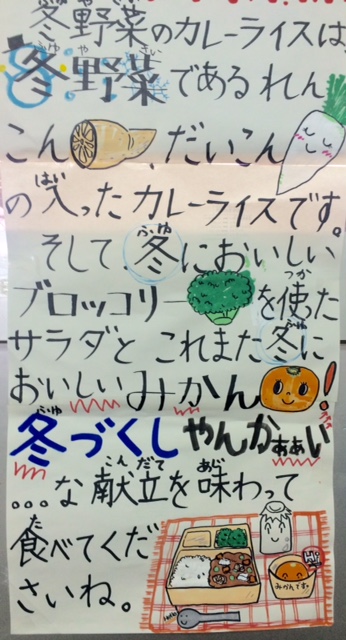 冬野菜のカレーライスは、
冬野菜であるれん
こん、だいこん
の入ったカレーライスです。
そして、冬においしい
ブロッコリーを使った
サラダと、これまた冬に
おいしいみかん!
冬づくしやんかぁぁい
...な献立を味わって
食べてくだ
さいね。
みかんです。